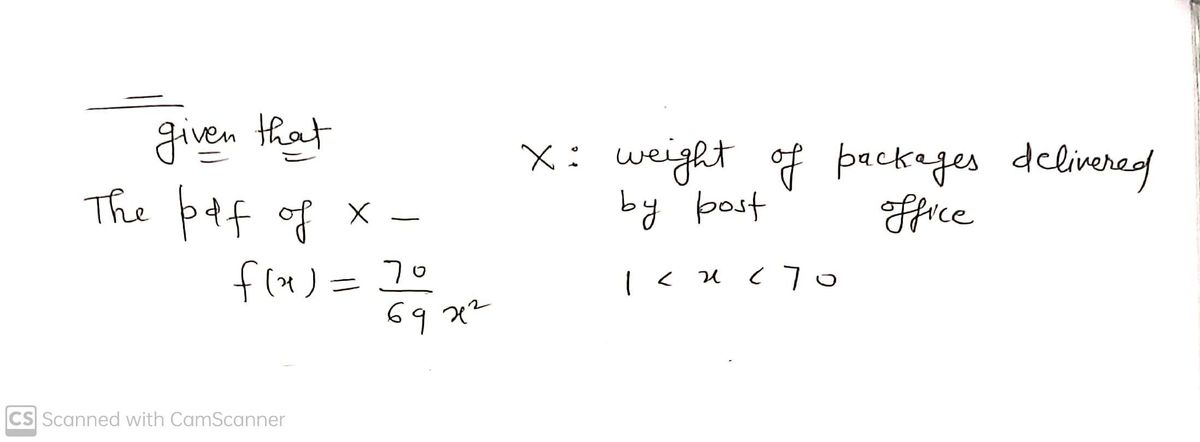 given that
X: weight of packages delivered
by post office
The pdf of x –
f(x) = 70 / 69 x²
1 < x < 70
CS Scanned with CamScanner